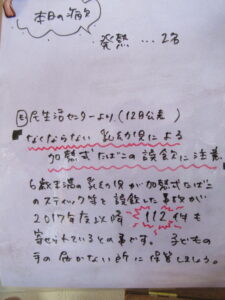 本日の病欠
発熱 … 2名
国民生活センターより、(12日公表)
なくならない 乳幼児による
加熱式たばこの誤飲に注意
6歳未満の乳幼児が加熱式たばこ
のスティック等を誤飲した事故が
2017年度以降 112件も
寄せられているとの事です。子どもの
手の届かない所に保管しましょう。